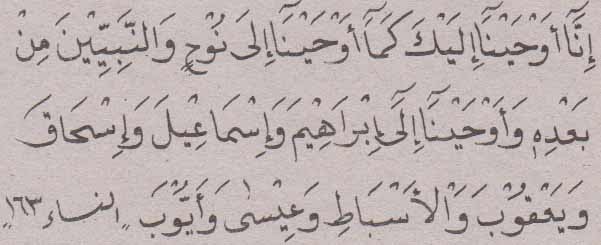 إِنَّآ أَوْحَيْنَآ إِلَيْكَ كَمَآ أَوْحَيْنَآ إِلَى نُوْحٍ وَالنَّبِيِّيْنَ مِنْ
بَعْدِهِ وَأَوْحَيْنَآ إِلَى إِبْرَاهِيْمَ وَإِسْمَاعِيْلَ وَإِسْحَاقَ
وَيَعْقُوْبَ وَالْأَسْبَاطِ وَعِيْسٰى وَأَيُّوْبَ النساء ١٦٣